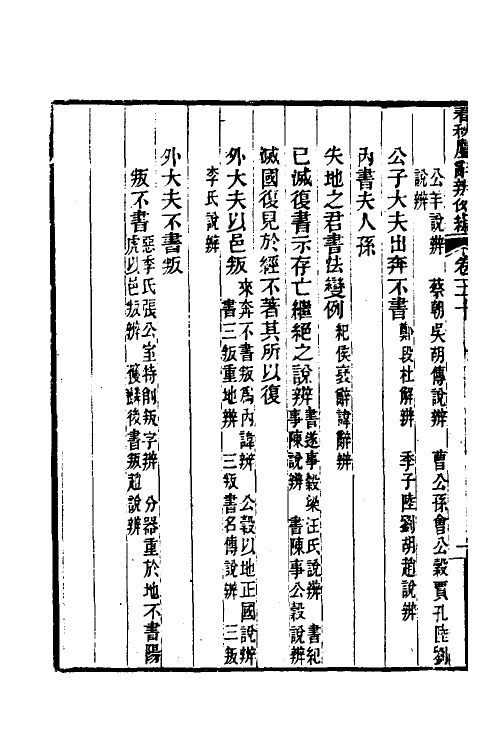 春秋屬辭辨例編 卷五十
公羊說辨 蔡朝吳胡傳說辨 曹公孫會公穀賈孔陸劉
說辨
公子大夫出奔不書 鄭段杜解辨 季子陸劉胡趙說辨
內書夫人孫
失地之君書法變例 紀侯衰辭諱辭辨
已滅復書示存亡繼絕之說辨 書遂事穀梁汪氏說辨 書紀
事陳說辨 書陳事公穀說辨
滅國復見於經不著其所以復
外大夫以邑叛 來奔不書叛為內諱辨 公穀以地正國說辨
書三叛重地辨 三叛書名傳說辨 三叛
李氏說辨
外大夫不書叛
惡季氏張公室特削叛字辨 分器重於地不書陽
叛不書
虎以邑叛辨 獲麟後書叛趙說辨